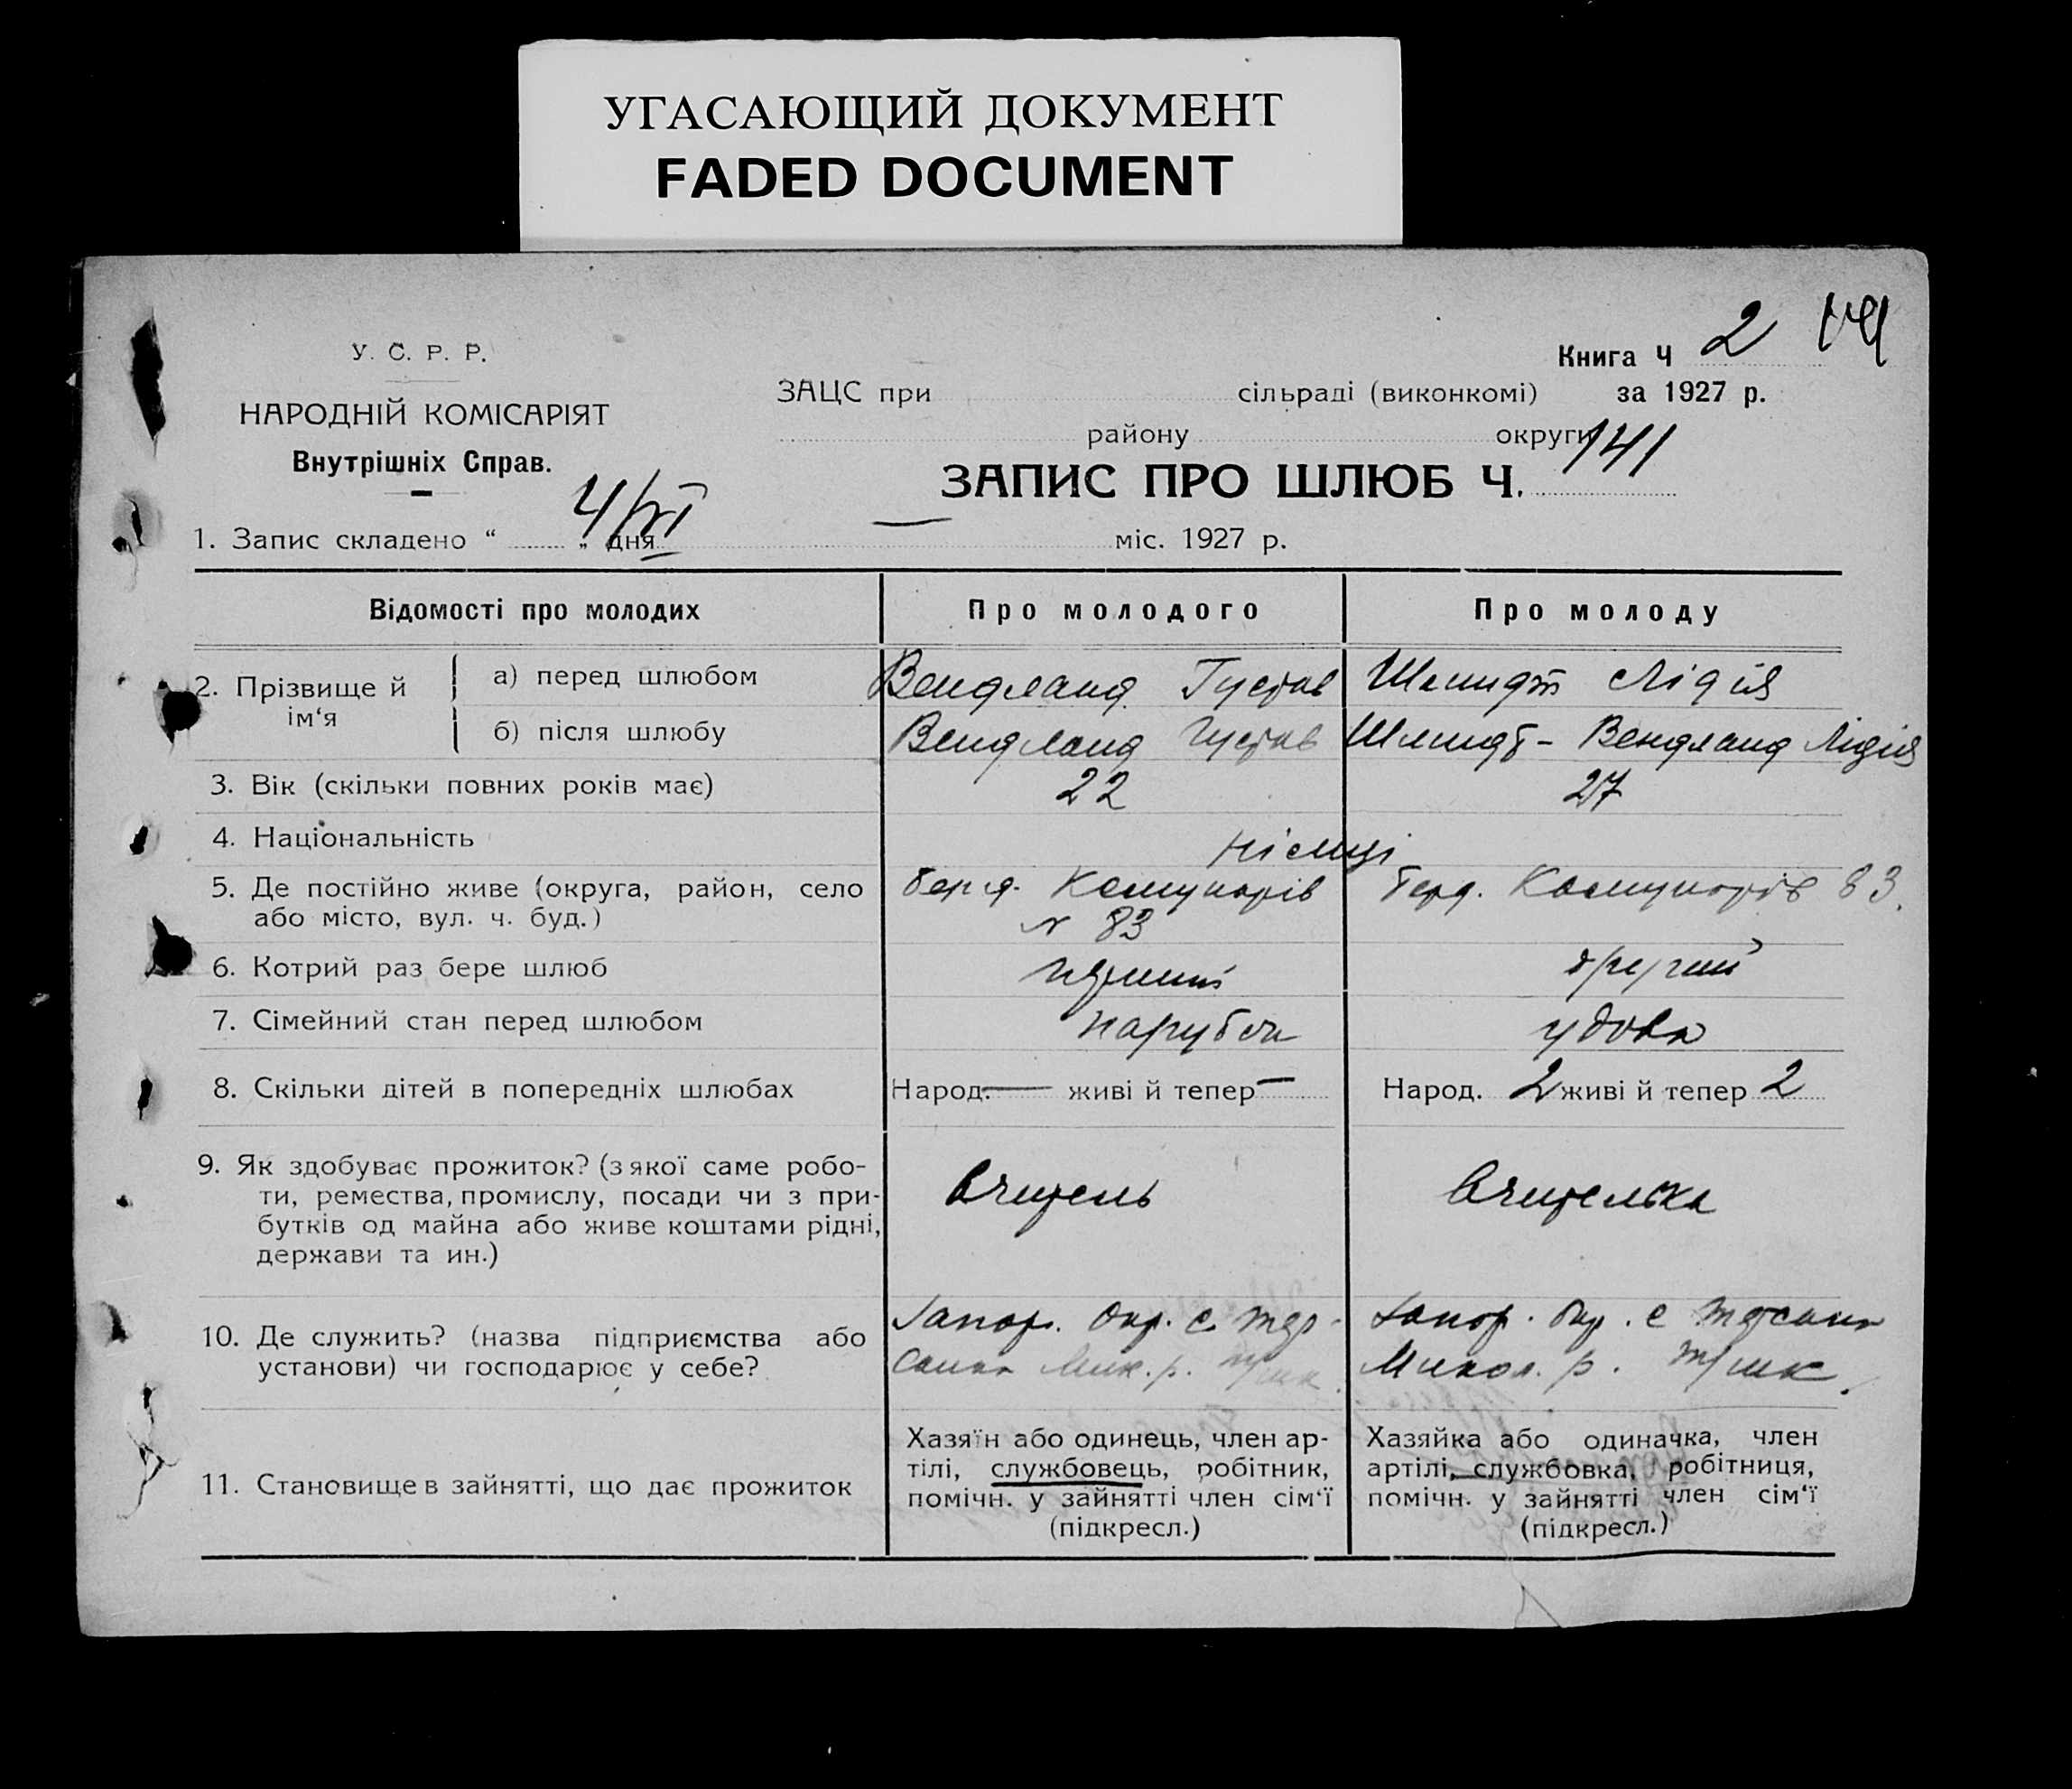 УГАСАЮЩИЙ ДОКУМЕНТ
FADED DOCUMENT
Книга Ч 2
У. С. Р. Р.
ЗАЦС при сільраді (виконкомі) за 1927 р.
НАРОДНІЙ КОМІСАРІЯТ
району округи
Внутрішніх Справ.
141
ЗАПИС ПРО ШЛЮБ Ч.
4/VI
1. Запис складено “ „ дня міс. 1927 р.
Відомості про молодих Про молодого Про молоду
2. Прізвище й ім‘я
а) перед шлюбом Вендланд Густав Шмидт Лідія
б) після шлюбу Вендланд Густав Шмидт - Вендланд Лідія
3. Вік (скільки повних років має) 22 27
4. Національність німці
5. Де постійно живе (округа, район, село Берд. Комунарів Берд. Комунарів 83.
або місто, вул. ч. буд.) № 83
6. Котрий раз бере шлюб перший другий
7. Сімейний стан перед шлюбом парубок удова
8. Скільки дітей в попередніх шлюбах Народ. — живі й тепер — Народ. 2 живі й тепер 2
9. Як здобуває прожиток? (з якої саме робо-
ти, ремества, промислу, посади чи з при- Вчитель Вчителька
бутків од майна або живе коштами рідні,
держави та ин.)
10. Де служить? (назва підприємства або Запор. Окр. с. Запор. Окр. с
установи) чи господарює у себе? Мик. р. Микол. р.
Хазяїн або одинець, член ар- Хазяйка або одиначка, член
тілі, службовець, робітник, артілі, службовка, робітниця,
11. Становище в зайнятті, що дає прожиток помічн. у зайнятті член сім‘ї помічн. у зайнятті член сім‘ї
(підкресл.) (підкресл.)